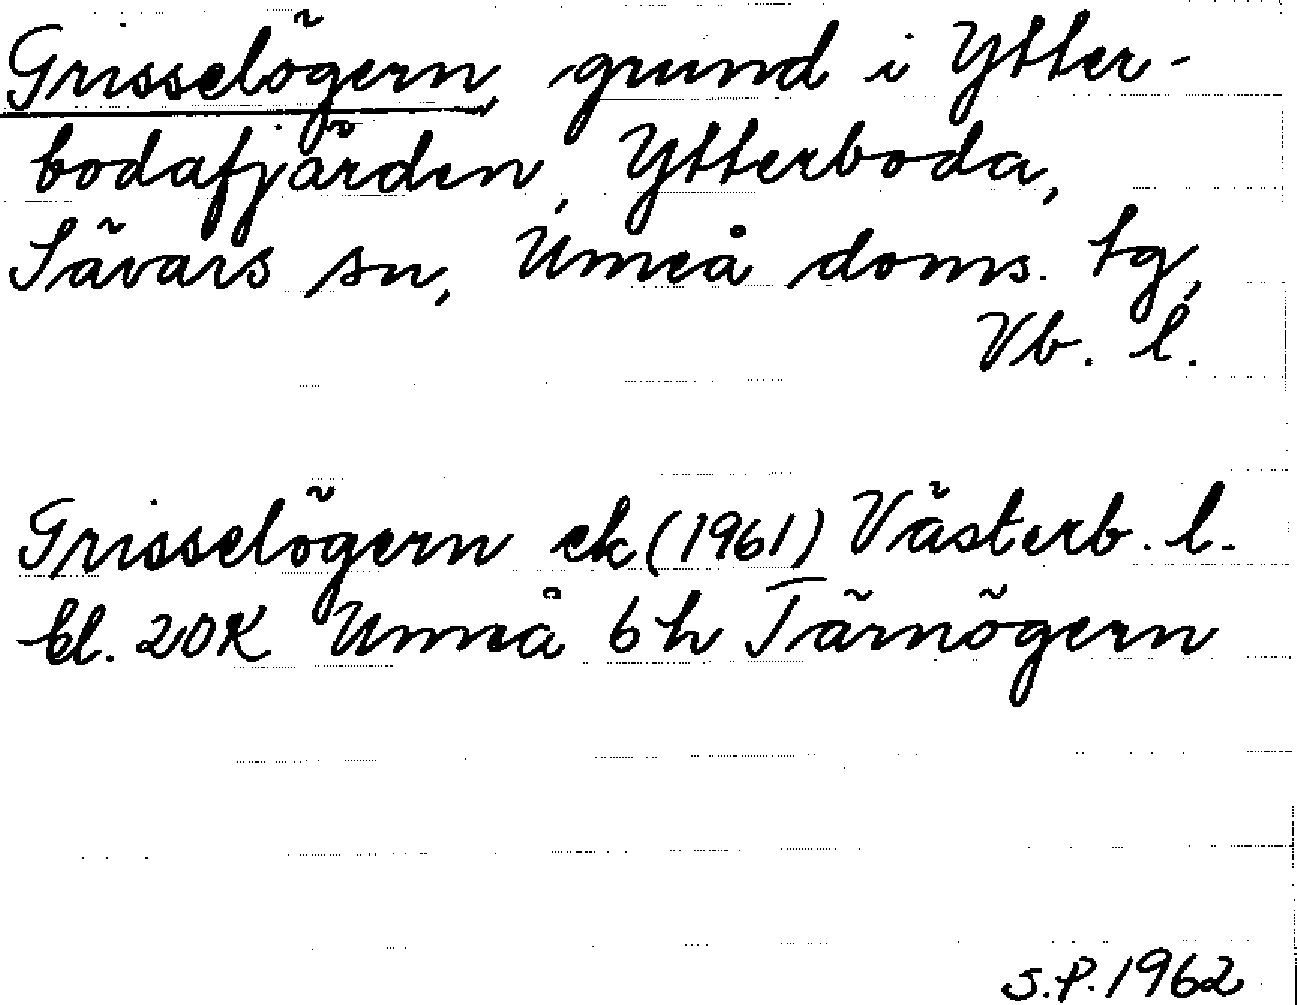 Grisselögern, grund i Ytter-
bodafjärden, Ytterboda,
Sävars sn, Umeå doms. tg,
Vb. l.
Grisselögern ek (1961) Västerb. l.
bl. 20K Umeå 6h Tärnögern
S.P. 1962